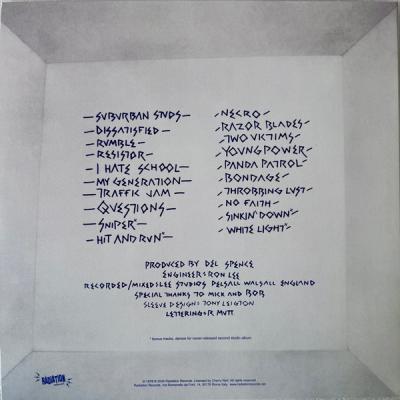 — SUBURBAN STUDS —
— DISSATISFIED —
— RUMBLE —
— RESISTOR —
— I HATE SCHOOL —
— MY GENERATION —
— TRAFFIC JAM —
— QUESTIONS —
— SNIPER* —
— HIT AND RUN* —
- NECRO -
- RAZOR BLADES -
- TWO VICTIMS -
- YOUNG POWER -
- PANDA PATROL -
- BONDAGE -
- THROBBING LUST -
- NO FAITH -
- SINKIN' DOWN* -
- WHITE LIGHT* -
PRODUCED BY DEL SPENCE
ENGINEER: RON LEE
RECORDED/MIXED: LEE STUDIOS PELSALL WALSALL ENGLAND
SPECIAL THANKS TO MICK AND BOB
SLEEVE DESIGN: TONY LEIGTON
LETTERING: R MUTT
* bonus tracks, demos for never-released second studio album
RADIATION
Radiation Records. Licensed by Cherry Red. All rights reserved.